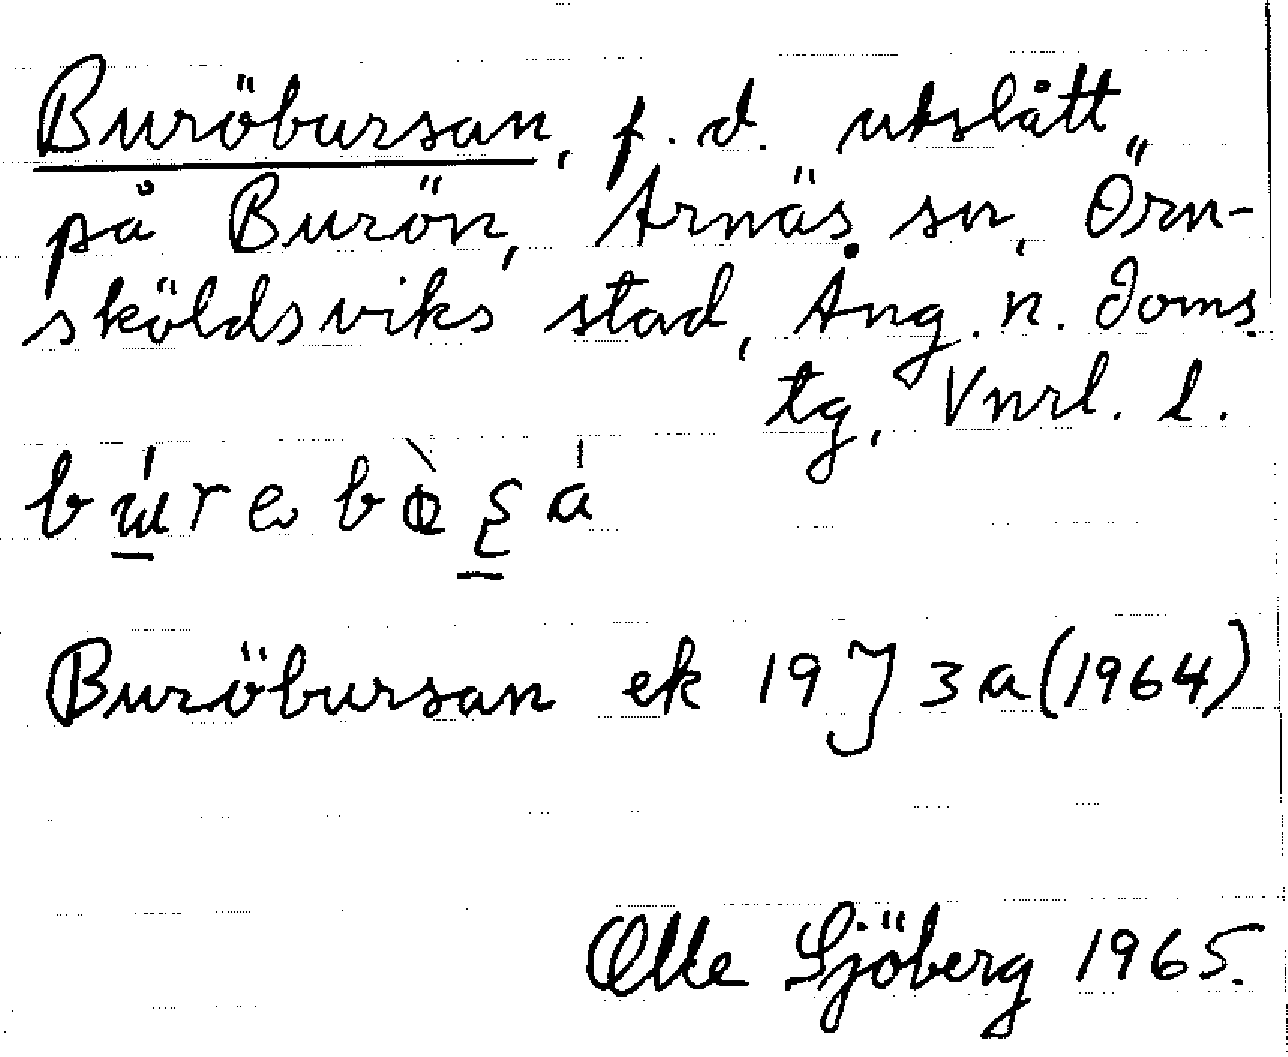 Buröbursan, f.d. utslått
på Burön, Arnäs sn, Örn-
sköldsviks stad, Ång. n. Doms.
tg, Vnrl. l.
Buröbursan ek 19J 3a (1964)
Olle Sjöberg 1965.